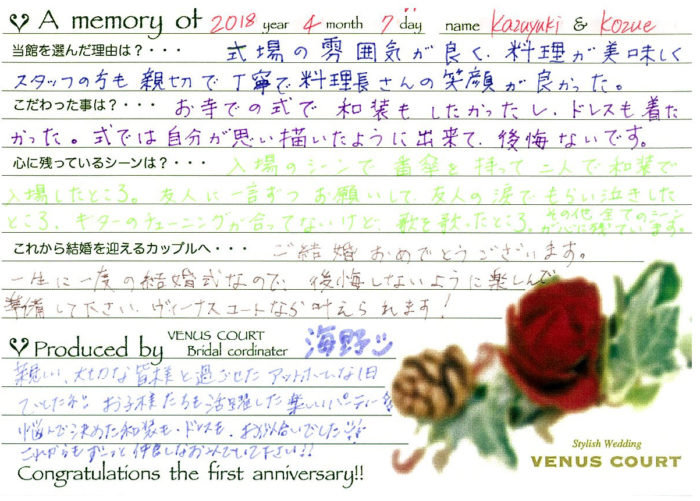 A memory of 2018 year 4 month 7 day name Kazuyuki & Kozue
当館を選んだ理由は?・・・ 式場の雰囲気が良く、料理が美味しく
スタッフの方も親切で丁寧で料理長さんの笑顔が良かった。
こだわった事は?・・・ お寺での式で和装もしたかったし、ドレスも着た
かった。式では自分が思い描いたように出来て、後悔ないです。
心に残っているシーンは?・・・ 入場のシーンで番傘を持って二人で和装で
入場したところ。友人に一言ずつお願いして、友人の涙でもらい泣きした
ところ、ギターのチューニングが合ってないけど、歌を歌ったところ。その他全てのシーン
が心に残ています。
これから結婚を迎えるカップルへ・・・ ご結婚おめでとうございます。
一生に一度の結婚式なので、後悔しないように楽しんで
準備して下さい。ヴィーナスコートなら叶えられます!
Produced by VENUS COURT
Bridal cordinater 海野
親しい、大切な皆様と過ごせたアットホームな1日
でしたね。お子様たちも活躍した楽しいパーティー
悩んで決めた和装も、ドレスも、お似合いでした
これからもずーっと仲良しなお二人でいて下さい!!
Congratulations the first anniversary!!
Stylish Wedding
VENUS COURT